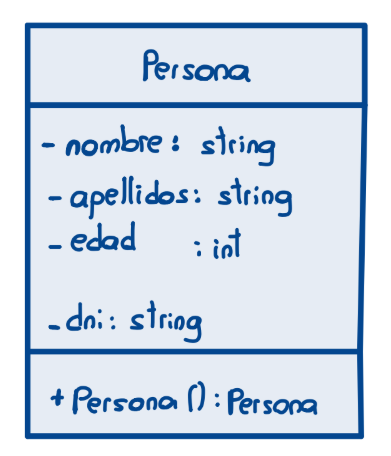 Persona
- nombre: string
- apellidos: string
- edad : int
- dni: string
+ Persona (): Persona